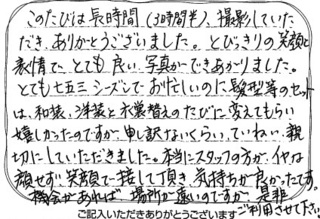 このたびは長時間(3時間半)、撮影していた
だき、ありがとうございました。とびっきりの笑顔と
表情で、とても良い写真ができあがりました。
とても七五三シーズンでお忙しいのに髪型等のセット
は、和装、洋装と衣裳替えのたびに変えてもらい
嬉しかったのですが、申し訳ないくらい、ていねい、親
切にしていただきました。本当にスタッフの方が、イヤな
顔せず、笑顔で接して頂き、気持ちが良かったです。
機会があれば、場所が遠いのですが、是非
ご利用させて下さい。
ご記入いただきありがとうございます